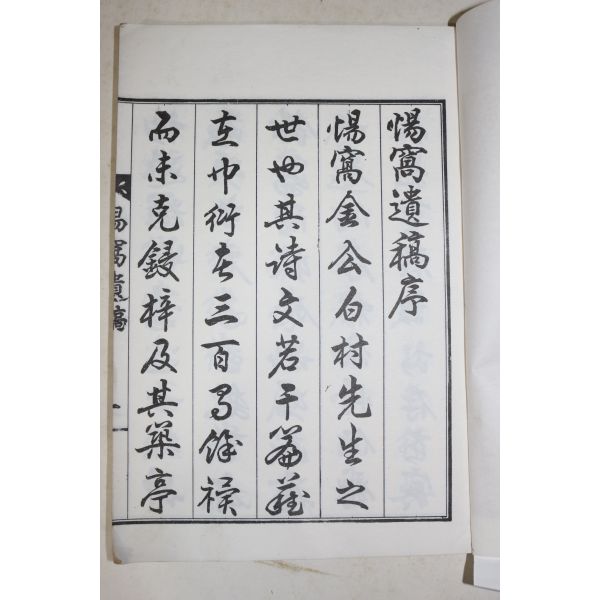 惕窩遺稿序
惕窩金公白村先生之
世也其詩文若干篇藏
在巾衍者三百有餘禩
而未克鋟梓及其築亭
窩遺稿